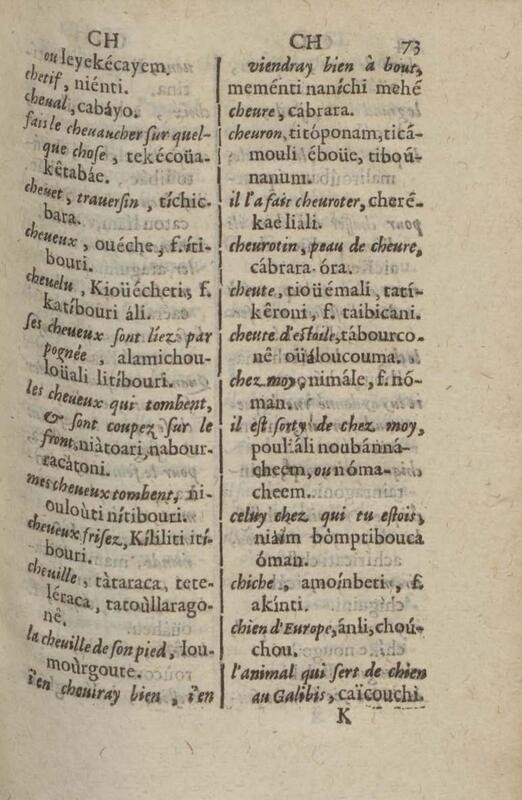 CH
ou leyekécayem.
chetif, niénti.
cheual, cabáyo.
fais le cheuaucher sur quel-
que chose, tekécoüa-
kêtabáe.
cheuet, trauersin, tíchic-
bara.
cheueux, ouéche, f. íti-
bouri.
cheuelu, Kioüécheti, f.
katíbouri áli.
ses cheueux sont liez par
pognée, alamichou-
loüali litíbouri.
les cheueux qui tombent,
& sont coupez sur le
front, niàtoari, nabour-
racàtoni.
mes cheueux tombent, ni-
ouloùti nítibouri.
cheueux frisez, Kíliliti ití-
bouri.
cheuille, tàtaraca, tete-
léraca, tatoùllarago-
nê.
la cheuille de son pied, lou-
moùrgoute.
i'en cheuiray bien, i'en
CH 73
viendray bien à bout,
meménti naníchi mehé
cheure, cábrara.
cheuron, titóponam, ticá-
mouli éboüe, tiboú-
nanum.
il l'a fait cheuroter, cheré-
kae liali.
cheurotin, peau de cheure,
cábrara óra.
cheute, tioüémali, tatí-
kêroni, f. taibicáni.
cheute d'estoile, tábourco-
nê oüáloucouma.
chez moy, nimále, f. nó-
man.
il est sorty de chez moy,
poulíáli noubánná-
cheem, ou nóma-
cheem.
celuy chez qui tu estois,
niaim bòmptibouca
óman.
chiche, amoínbeti, f.
akínti.
chien d'Europe, ánli, choú-
chou.
l'animal qui sert de chien
au Galibis, caïcouchi.
K